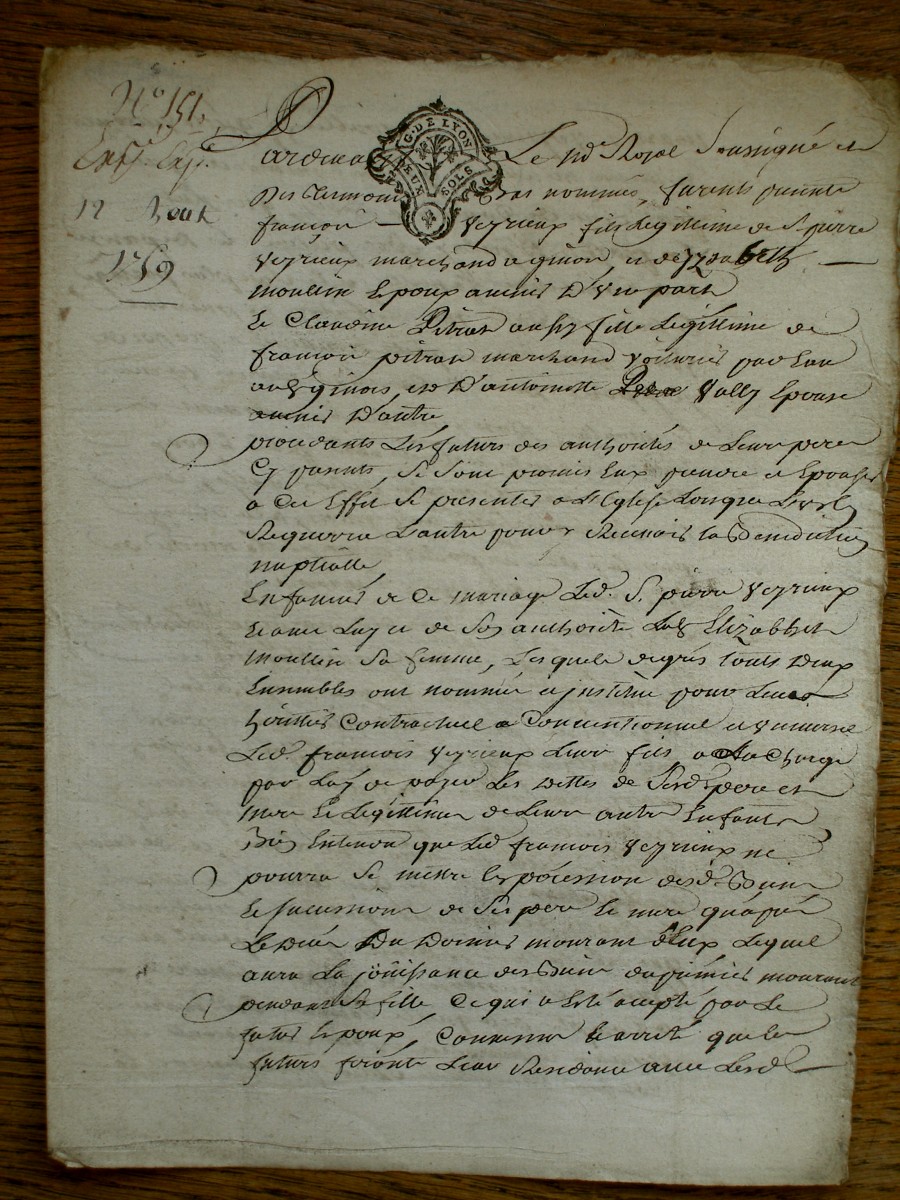 N.o 151.
Exp.e
12 Aoust
1759
G. DE LYON
DEUX SOLS
Pardevant Le No.re Royal Soussigné et
Des temoins Bas nommés, furent presents
françois Veyrieux fils Legittime de S. pierre
Veyrieux marchand a givors, et de yzabeth
moullin Epoux avenir D'Une part
Et Claudine Pitrat aussy fille Legittime de
françois pitrat marchand Voiturier par Eau
audt givors, et D'antoinette Vally Epouse
avenir D'autre
procedants Les futurs des authorités de Leurs pere
Cy presents, Se Sont promis Eux prendre et Epouser
a Cet Effet Se presenter a L'Eglise Lorsque L'un
Requerra L'autre pour y Recevoir la Benediction
nuptialle
En faveur de Ce mariage Led. S. pierre Veyrieux
Et avec Luy et de Son authorité Elizabhet
moullin Sa femme, Lesquels degrés touts deux
Ensembles ont nommé et justitué pour Leur
héritier Contractuel et Conventionnel et Universel
Led. françois Veyrieux Leur fils a La Charge
par Luy de payer Les dettes de Sesd. pere et
mere et Legittimes de Leurs autres Enfants
Bien Entendu que Led. françois Veyrieux ne
pourra Se mettre En possession desd. Biens
Et Sucessions de Ses pere Et mere qu'après
Le Decès Du Dernier mourant d'Eux Lequel
aura La jouissance des Biens du premier mourant
pendant Ce qui a Esté acepté par Le
futur Epoux, Convenu et arreté que Les
futurs feront Leur Residence avec Lesd.